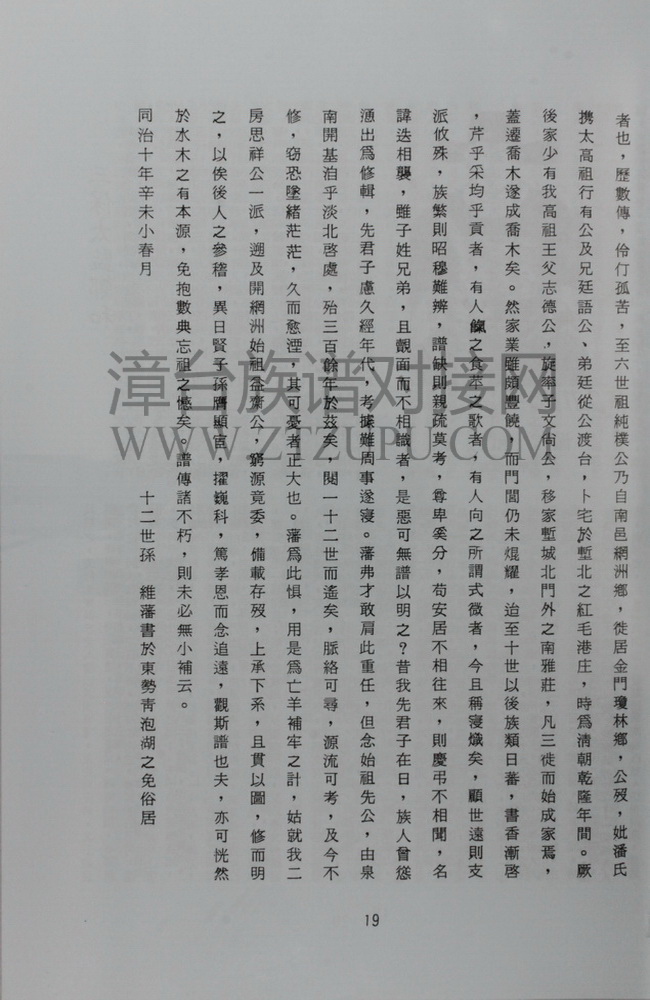 者也，歷數傳，伶仃孤苦，至六世祖純樸公乃自南邑網洲鄉，徙居金門瓊林鄉，公歿，妣潘氏
携太高祖行有公及兄廷語公、弟廷從公渡台，卜宅於塹北之紅毛港庄，時爲清朝乾隆年間。厥
後家少有我高祖王父志德公，旋率子文尙公，移家塹城北門外之南雅莊，凡三徙而始成家焉，
蓋遷喬木遂成喬木矣。然家業雖頗豐饒，而門閭仍未焜耀，迨至十世以後族類日蕃，書香漸啓
，芹乎采均乎貢者，有人之食苹之歌者，有人向之所謂式微者，今且稱寖熾矣，顧世遠則支
派攸殊，族繁則昭穆難辨，譜缺則親疏莫考，尊卑奚分，苟安居不相往來，則慶弔不相聞，名
諱迭相襲，雖子姓兄弟，且覿面而不相識者，是惡可無譜以明之？昔我先君子在日，族人曾慫
湧出爲修輯，先君子慮久經年代，考據難周事遂寢。藩弗才敢肩此重任，但念始祖先公，由泉
南開基泊乎淡北啓處，殆三百餘年於茲矣，閱一十二世而遙矣，脈絡可尋，源流可考，及今不
修，窃恐墜緒茫茫，久而愈湮，其可憂者正大也。藩爲此惧，用是爲亡羊補牢之計，姑就我二
房思祥公一派，遡及開網洲始祖益齋公，窮源竟委，備載存歿，上承下系，且貫以圖，修而明
之，以俟後人之參稽，異日賢子孫膺顯宦，擢巍科，篤孝恩而念追遠，觀斯譜也夫，亦可恍然
於水木之有本源，免抱數典忘祖之憾矣。譜傳諸不朽，則未必無小補云。
同治十年辛未小春月
十二世孫　維藩書於東勢靑泡湖之免俗居
19
漳台族谱对接网
WWW.ZTZUPU.COM